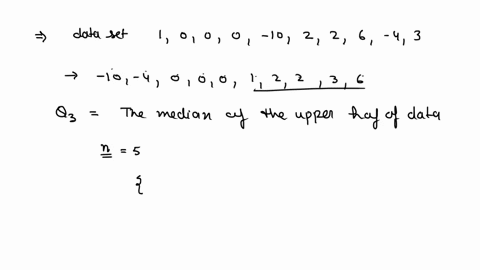 ⇒ data set 1, 0, 0, 0, -10, 2, 2, 6, -4, 3
→ -10, -4, 0, 0, 0, 1, 2, 2, 3, 6
Q₃ = The median of the upper haf of data
n = 5
{